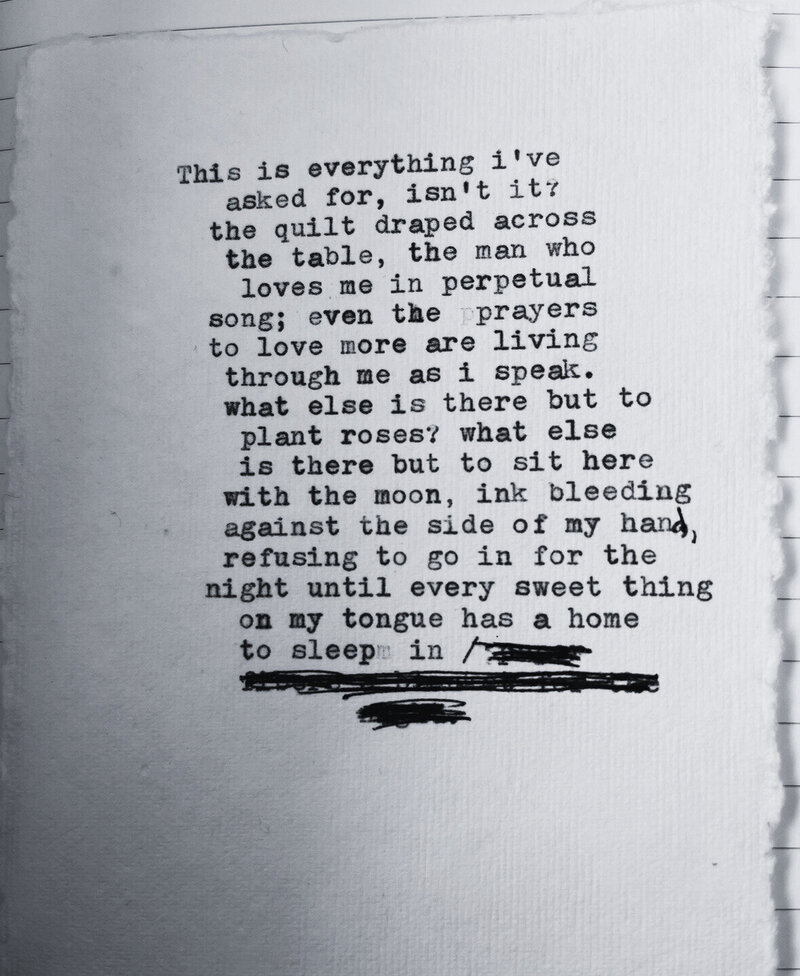 This is everything i've
asked for, isn't it?
the quilt draped across
the table, the man who
loves me in perpetual
song; even the prayers
to love more are living
through me as i speak.
what else is there but to
plant roses? what else
is there but to sit here
with the moon, ink bleeding
against the side of my hand,
refusing to go in for the
night until every sweet thing
on my tongue has a home
to sleep in /